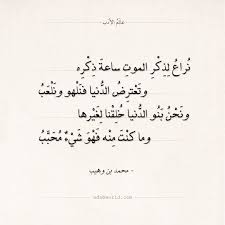 عالم الأدب
نُراعُ لِذِكْرِ الموتِ ساعةَ ذِكْرِه
وتَعْتَرِضُ الدُّنيا فنَلهو ونَلعَبُ
ونَحْنُ بَنُو الدُّنيا خُلِقْنا لِغَيْرِها
وما كنْتَ مِنْه فَهْوَ شَيْءٌ مُحَبَّبُ
- محمد بن وهيب -
adabworld.com